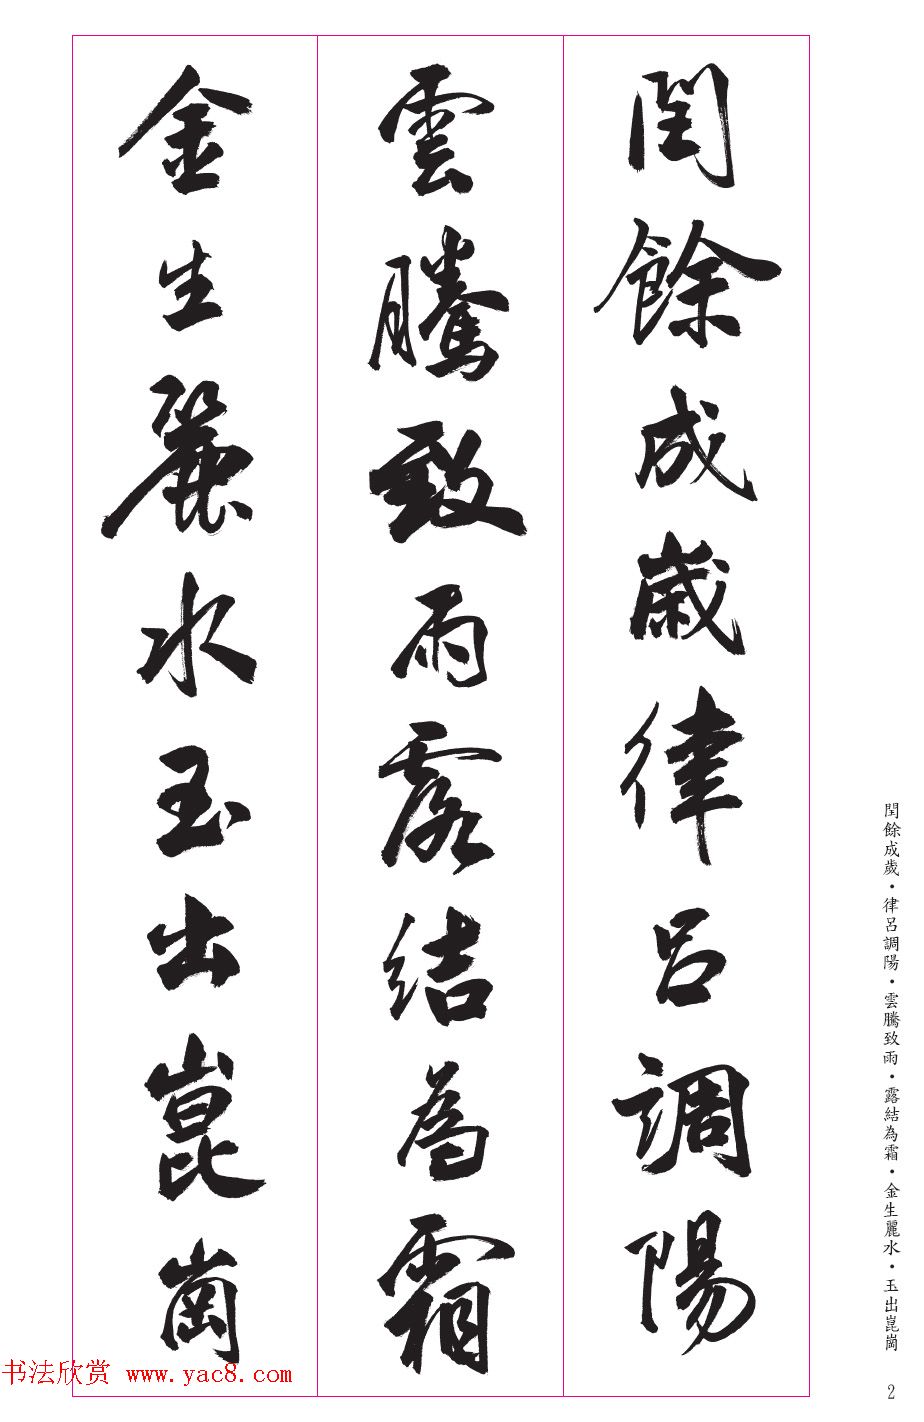 閏餘成歲律呂調陽
雲騰致雨露結為霜
金生麗水玉出崑崗
閏餘成歲·律呂調陽·雲騰致雨·露結為霜·金生麗水·玉出崑崗
2
书法欣赏 www.yac8.com